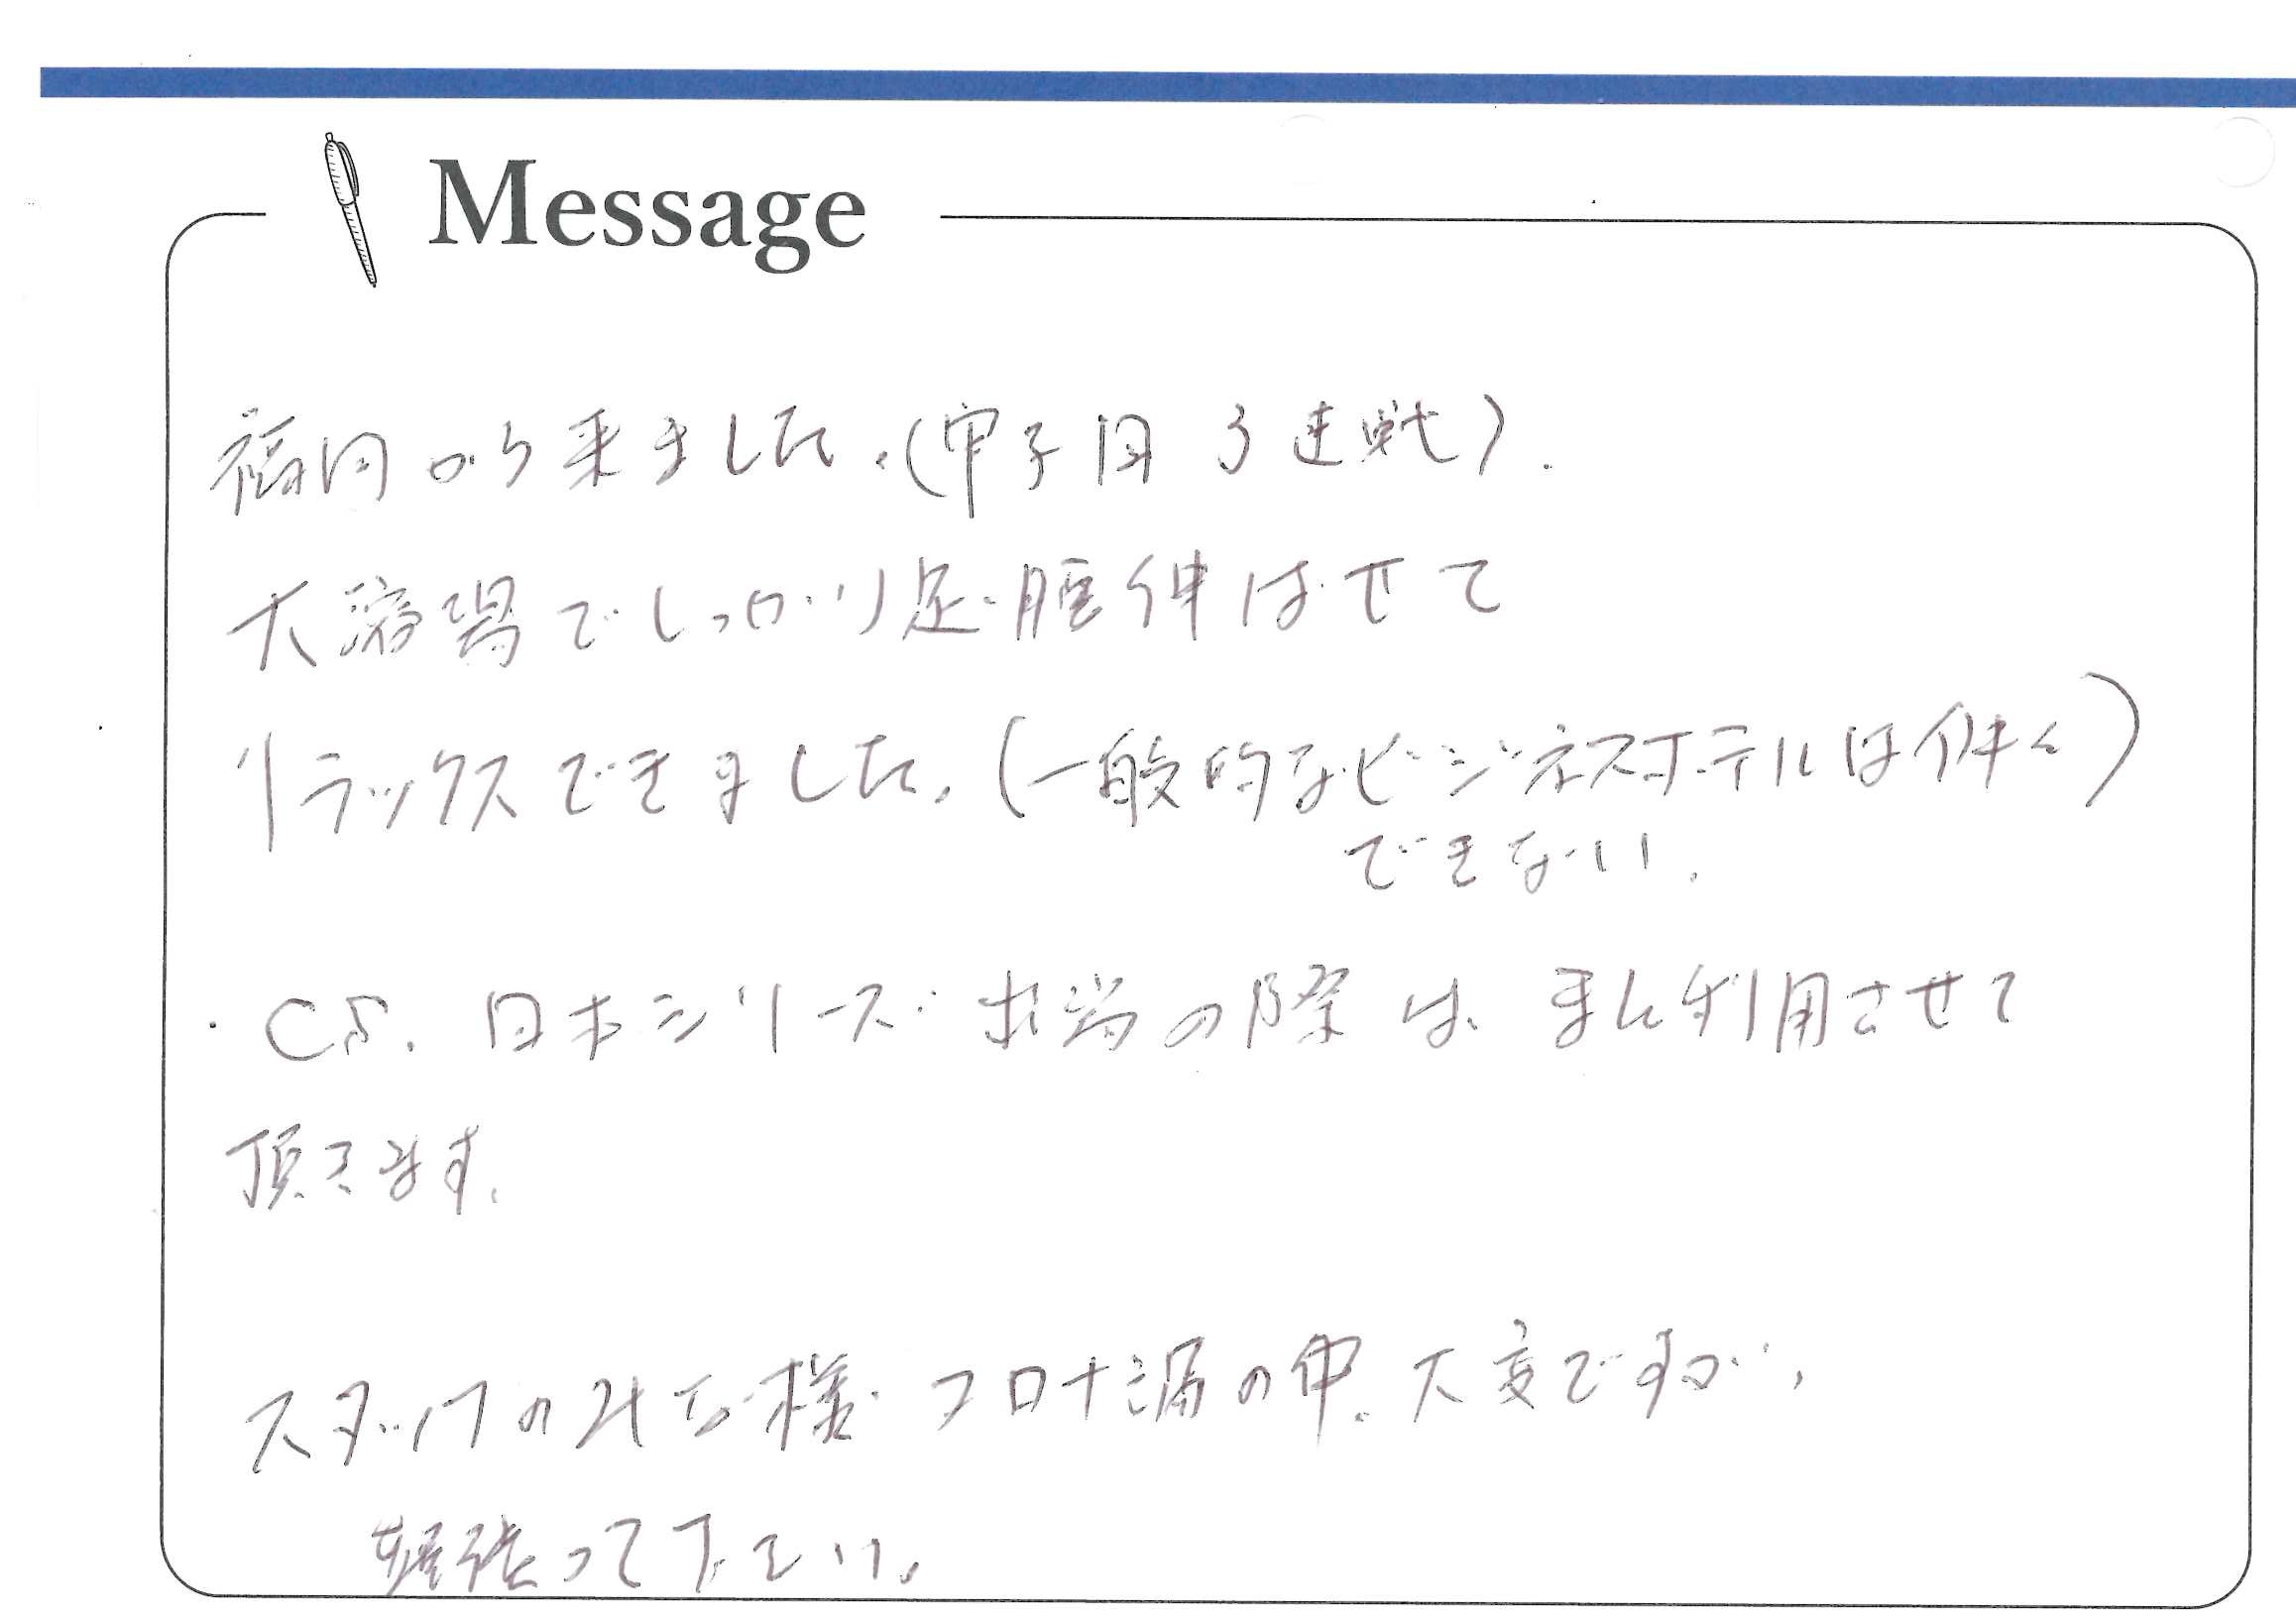 Message
福岡から来ました。(甲子園 3連戦).
大浴場でしっかり足・腰伸ばせて
リラックスできました。(一般的なビジネスホテルは伸ばせ)
できない.
・CS. 日本シリーズ出場の際は また利用させて
頂きます.
スタッフのみな様 コロナ渦の中. 大変ですが,
頑張って下さい。